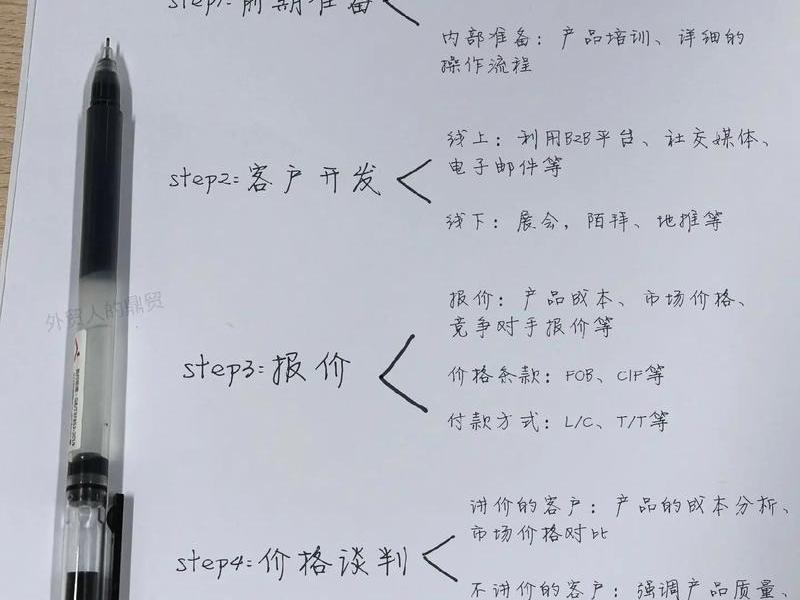 step1:前期准备
内部准备：产品培训、详细的
操作流程
step2:客户开发
线上：利用B2B平台、社交媒体、
电子邮件等
线下：展会，陌拜、地推等
step3:报价
报价：产品成本、市场价格、
竞争对手报价等
价格条款：FOB、CIF等
付款方式：L/C、T/T等
step4:价格谈判
讲价的客户：产品的成本分析、
市场价格对比
不讲价的客户：强调产品质量、
外贸人的鼎贸